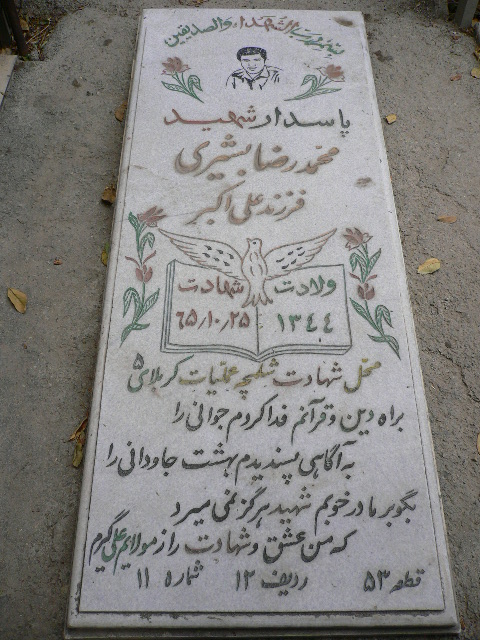 بسم رب الشهداء والصدیقین
پاسدار شهید
محمدرضا بشیری
فرزند علی اکبر
ولادت شهادت
۱۳۴۴ ۶۵/۱۰/۲۵
محل شهادت شلمچه عملیات کربلای ۵
براه دین و قرآنم فدا کردم جوانی را
به آگاهی پسندیدم بهشت جاودانی را
بگو بر مادر خوبم شهید هرگز نمی میرد
که من عشق و شهادت را ز مولایم علی گیرم
قطعه ۵۳ ردیف ۱۲ شماره ۱۱